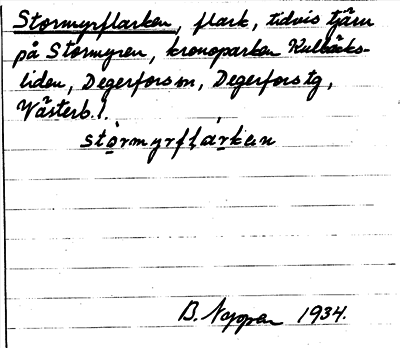 Stormyrflarken, flark, tidvis tjärn
på Stormyren, kronoparken Kulbäcks-
liden, Degerfors sn, Degerfors tg,
Västerb. l.
stòrmyrflàrkan
B. 1934.